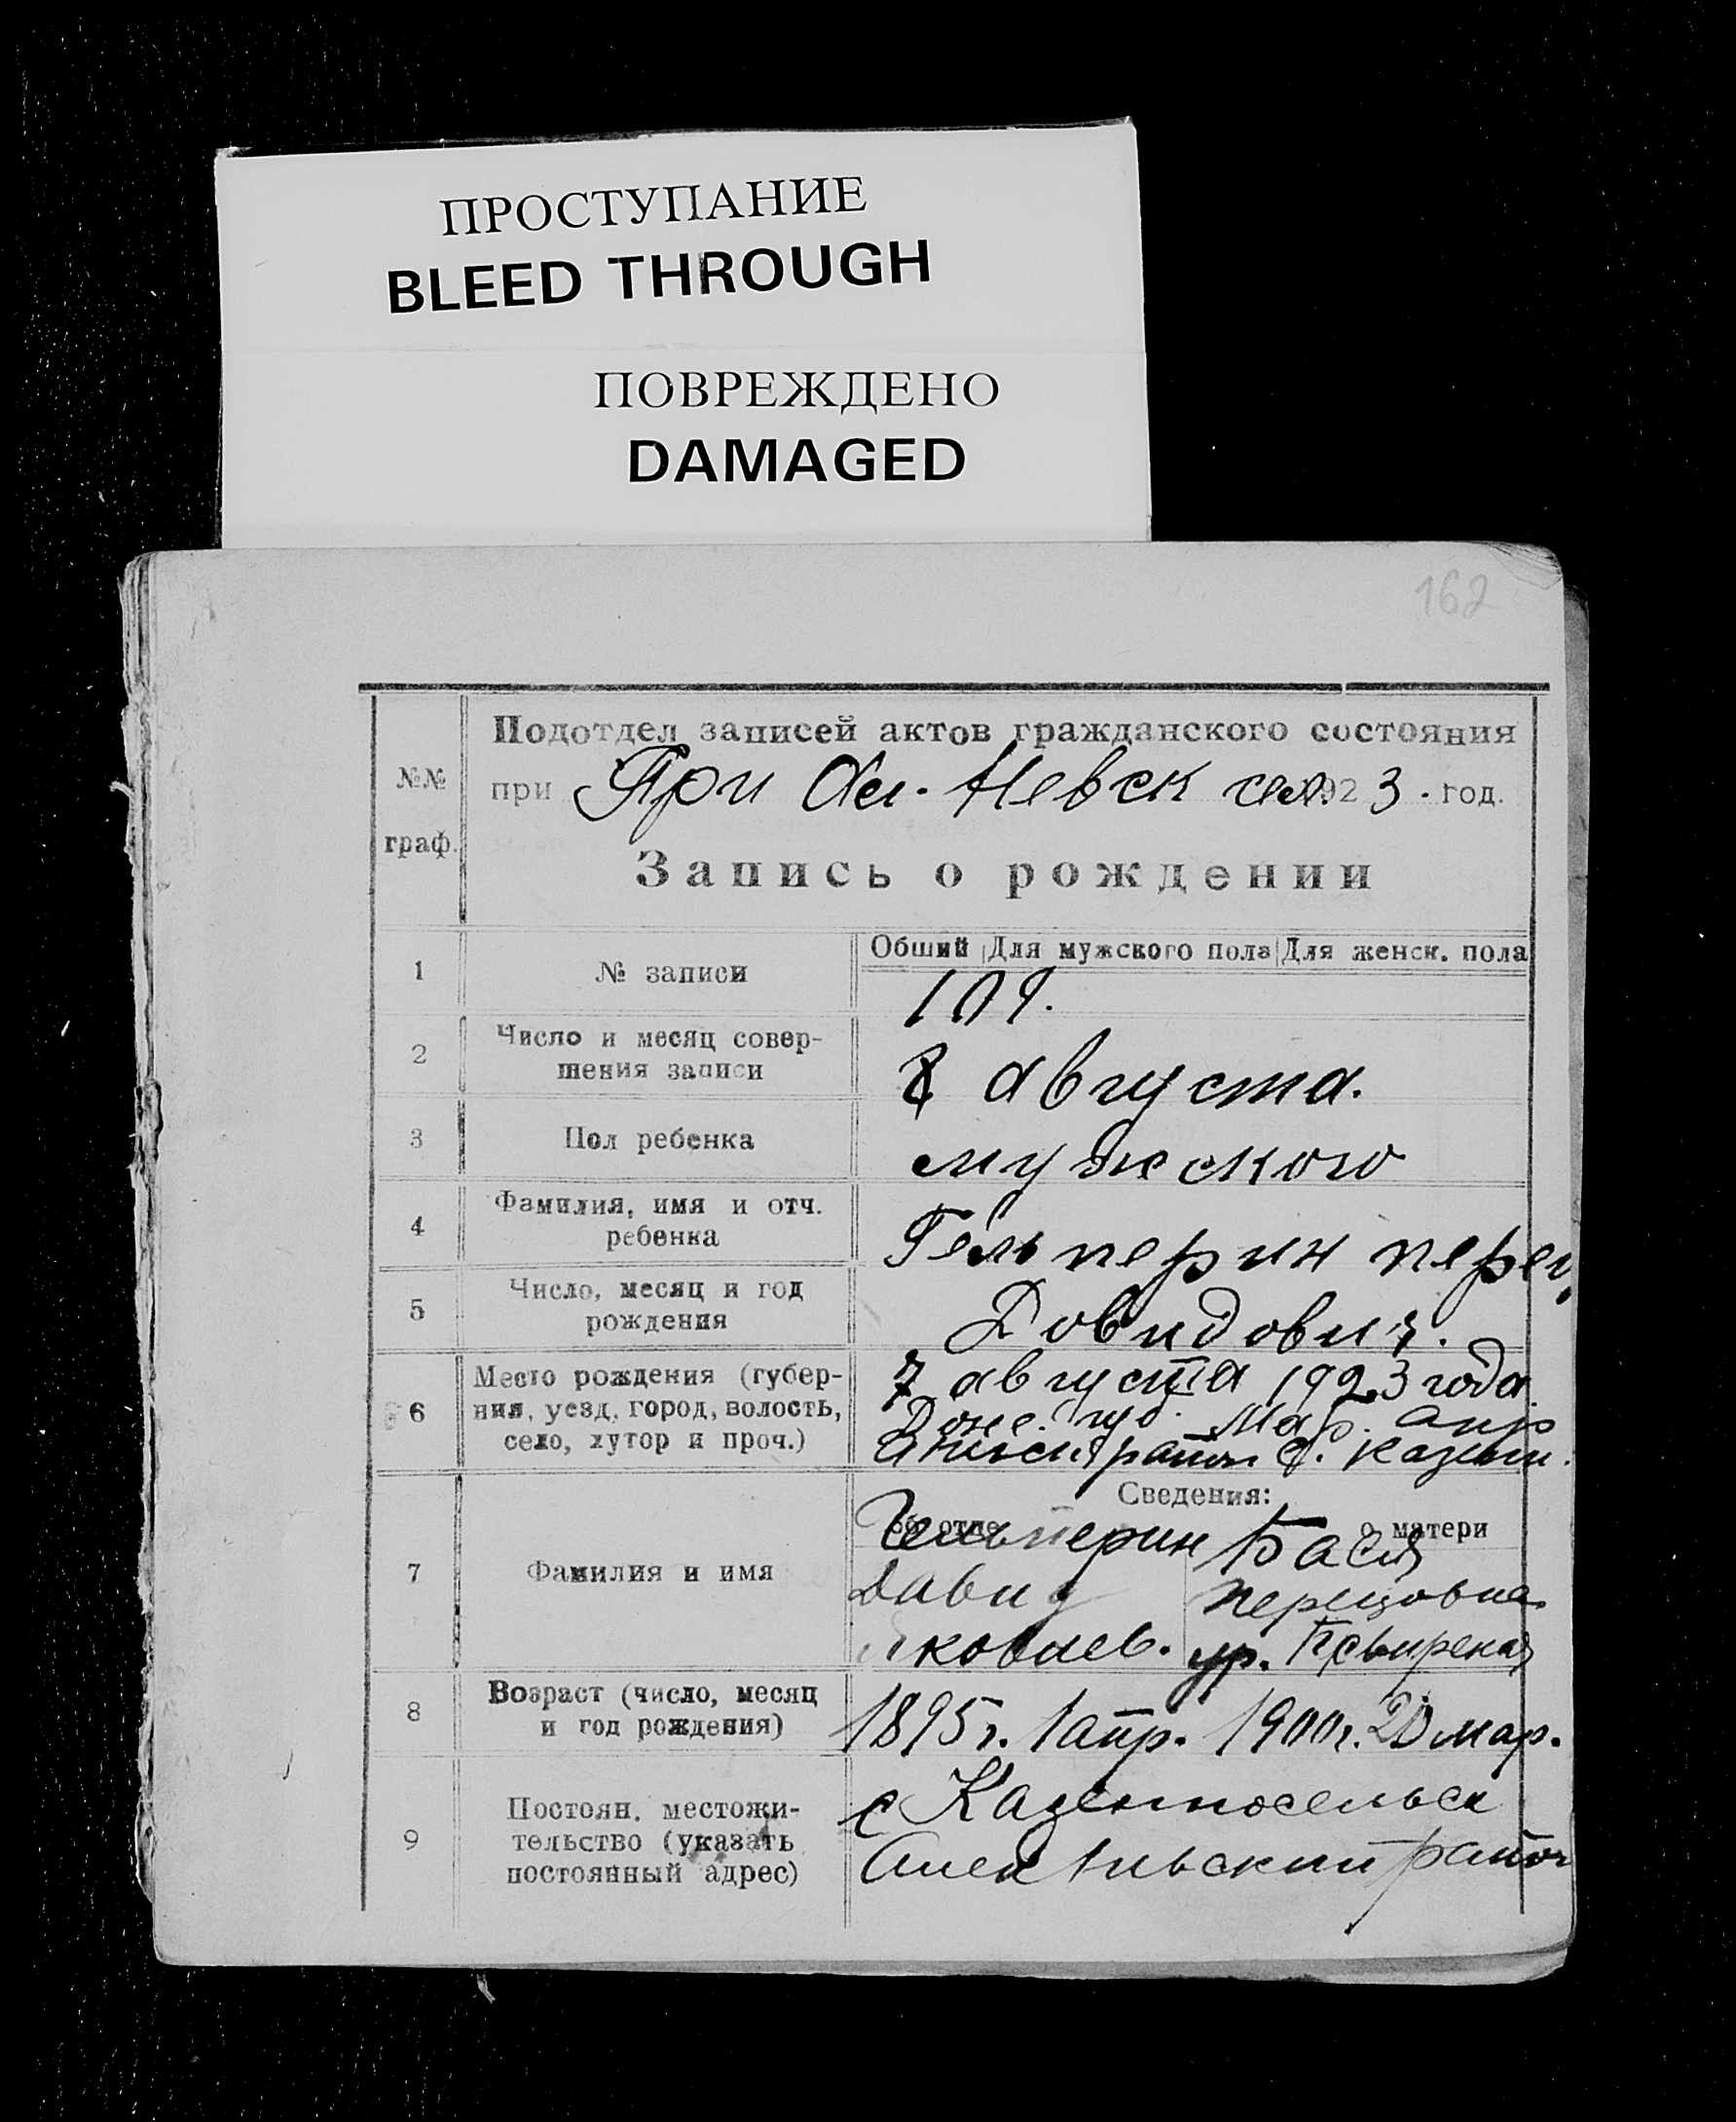 ПРОСТУПАНИЕ
BLEED THROUGH
ПОВРЕЖДЕНО
DAMAGED
162
Подотдел записей актов гражданского состояния
№№ граф.
при При Ал. Невск сел. 1923. год.
Запись о рождении
Общий Для мужского пола Для женск. пола
1 № записи 109.
2 Число и месяц совер-
шения записи 8 августа.
3 Пол ребенка мужского
4 Фамилия, имя и отч.
ребенка Гельперин перец
5 Число, месяц и год
рождения Довидович.
7 августа 1923 года
6 Место рождения (губер-
ния, уезд, город, волость,
село, хутор и проч.) Доне. губ. Мар. окр
район с. Казенн.
Сведения:
об отце о матери
7 Фамилия и имя Гельперин Бася
Давид Перецовна
Яковлев. ур.
8 Возраст (число, месяц
и год рождения) 1895 г. 1 апр. 1900 г. 20 мар.
9 Постоян. местожи-
тельство (указать
постоянный адрес) с Казенносельск
район